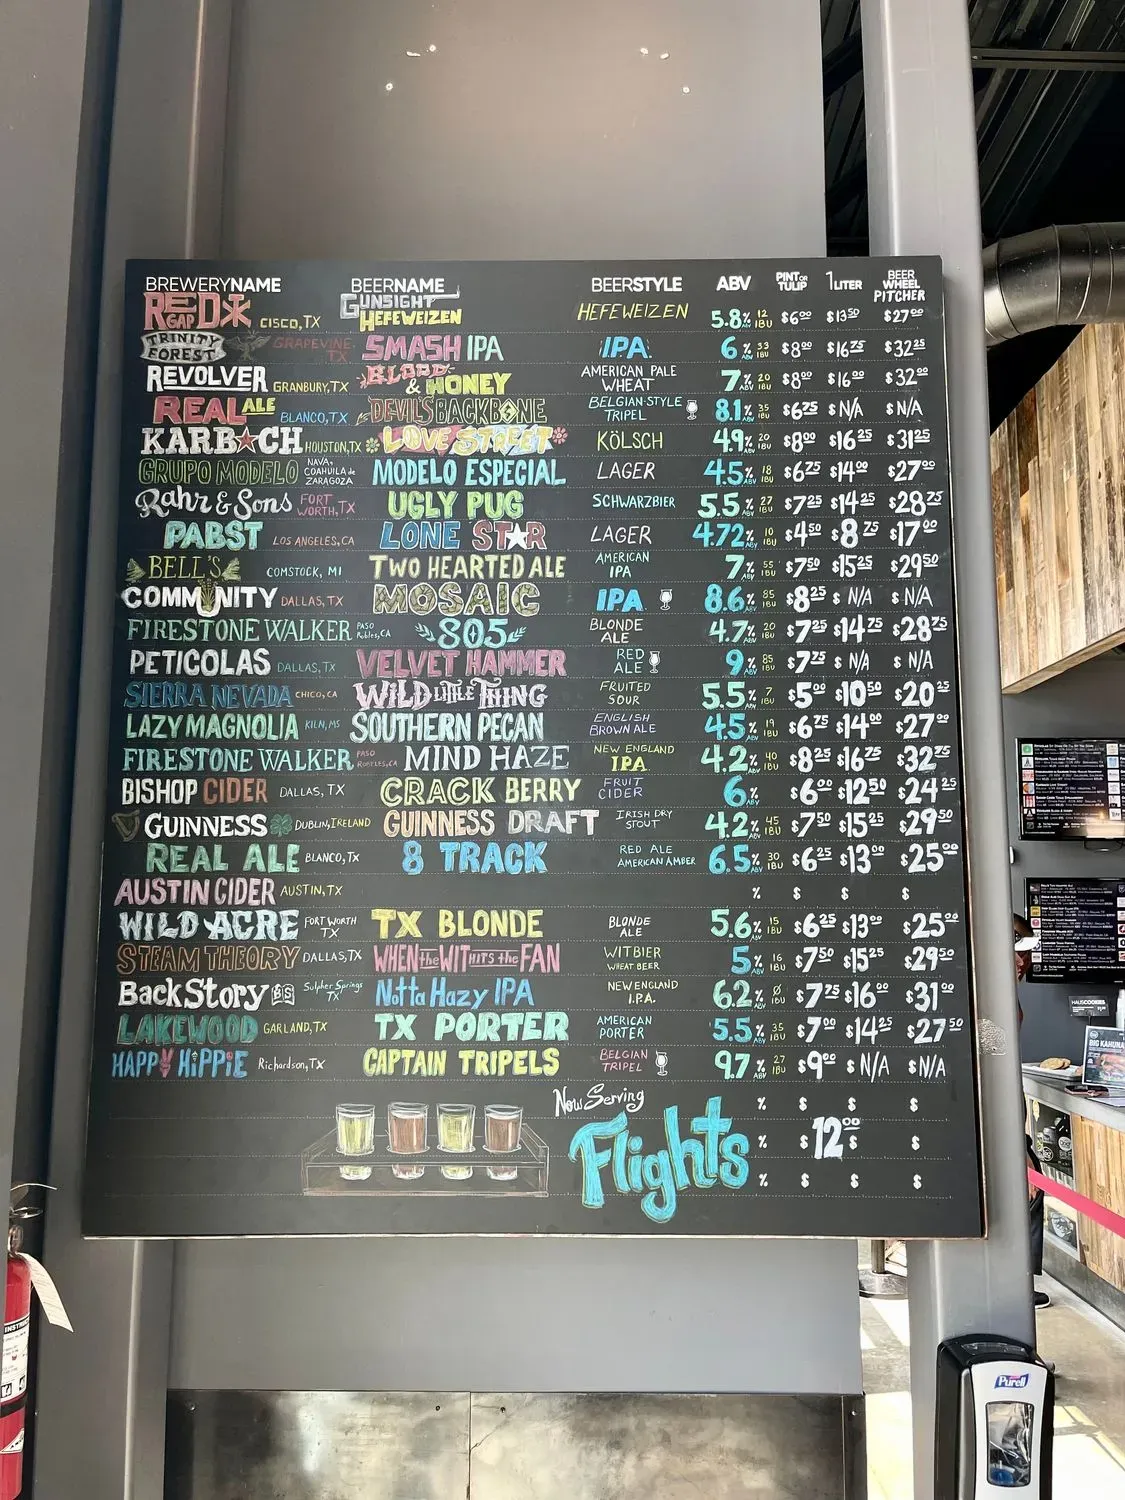 BREWERYNAME BEERNAME BEERSTYLE ABV PINT OR TULIP 1 LITER BEER WHEEL PITCHER
RED GAP CISCO, TX GUNSIGHT HEFEWEIZEN HEFEWEIZEN 5.8% 12 IBU $6.00 $13.50 $27.00
TRINITY FOREST GRAPEVINE, TX SMASH IPA IPA 6% 33 IBU $8.00 $16.75 $32.25
REVOLVER GRANBURY, TX BLOOD & HONEY AMERICAN PALE WHEAT 7% 20 IBU $8.00 $16.00 $32.00
REAL ALE BLANCO, TX DEVIL'S BACKBONE BELGIAN-STYLE TRIPEL 8.1% 35 IBU $6.75 $ N/A $ N/A
KARBACH HOUSTON, TX LOVE STREET KÖLSCH 4.9% 20 IBU $8.00 $16.25 $31.25
GRUPO MODELO NAVA, COAHUILA de ZARAGOZA MODELO ESPECIAL LAGER 4.5% ABV 18 IBU $6.75 $14.00 $27.00
Rahr & Sons FORT WORTH, TX UGLY PUG SCHWARZBIER 5.5% ABV 27 IBU $7.25 $14.25 $28.75
PABST LOS ANGELES, CA LONE STAR LAGER 4.72% ABV 10 IBU $4.50 $8.75 $17.00
BELL'S COMSTOCK, MI TWO HEARTED ALE AMERICAN IPA 7% ABV 55 IBU $7.50 $15.25 $29.50
COMMUNITY DALLAS, TX MOSAIC IPA 8.6% ABV 85 IBU $8.25 $ N/A $ N/A
FIRESTONE WALKER PASO Robles, CA 805 BLONDE ALE 4.7% ABV 20 IBU $7.25 $14.75 $28.75
PETICOLAS DALLAS, TX VELVET HAMMER RED ALE 9% ABV 85 IBU $7.75 $ N/A $ N/A
SIERRA NEVADA CHICO, CA WILD LITTLE THING FRUITED SOUR 5.5% ABV 7 IBU $5.00 $10.50 $20.25
LAZY MAGNOLIA KILN, MS SOUTHERN PECAN ENGLISH BROWN ALE 4.5% ABV 19 IBU $6.75 $14.00 $27.00
FIRESTONE WALKER PASO ROBLES, CA MIND HAZE NEW ENGLAND IPA 4.2% ABV 40 IBU $8.25 $16.75 $32.75
BISHOP CIDER DALLAS, TX CRACK BERRY FRUIT CIDER 6% ABV $6.00 $12.50 $24.25
GUINNESS DUBLIN, IRELAND GUINNESS DRAFT IRISH DRY STOUT 4.2% ABV 45 IBU $7.50 $15.25 $29.50
REAL ALE BLANCO, TX 8 TRACK RED ALE AMERICAN AMBER 6.5% ABV 30 IBU $6.25 $13.00 $25.00
AUSTIN CIDER AUSTIN, TX % $ $ $
WILD ACRE FORT WORTH TX TX BLONDE BLONDE ALE 5.6% ABV 15 IBU $6.25 $13.00 $25.00
STEAM THEORY DALLAS, TX WHEN the WIT HITS the FAN WITBIER WHEAT BEER 5% ABV 16 IBU $7.50 $15.25 $29.50
BackStory BS Sulpher Springs TX Notta Hazy IPA NEW ENGLAND I.P.A. 6.2% ABV Ø IBU $7.75 $16.00 $31.00
LAKEWOOD GARLAND, TX TX PORTER AMERICAN PORTER 5.5% ABV 35 IBU $7.00 $14.25 $27.50
HAPPY HiPPiE Richardson, TX CAPTAIN TRIPELS BELGIAN TRIPEL 9.7% ABV 27 IBU $9.00 $ N/A $ N/A
Now Serving % $ $ $
Flights % $12.00 $ $
% $ $ $
BIG KAHUNA
Purell